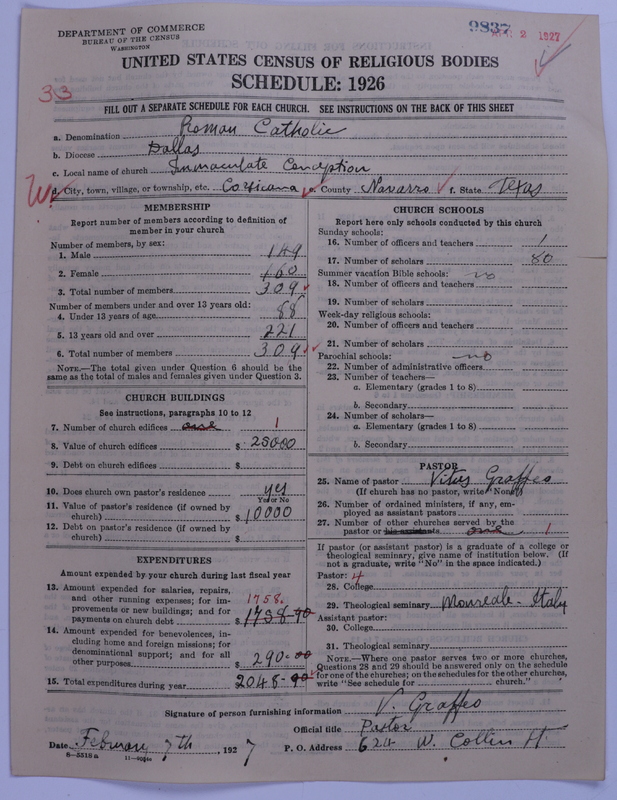 DEPARTMENT OF COMMERCE
BUREAU OF THE CENSUS
WASHINGTON
9837
2 1927
UNITED STATES CENSUS OF RELIGIOUS BODIES
SCHEDULE: 1926
33
FILL OUT A SEPARATE SCHEDULE FOR EACH CHURCH. SEE INSTRUCTIONS ON THE BACK OF THIS SHEET
a. Denomination Roman Catholic
b. Diocese Dallas
c. Local name of church Immaculate Conception
d. City, town, village, or township, etc. Corsicana e. County Navarro f. State Texas
MEMBERSHIP
Report number of members according to definition of
member in your church
Number of members, by sex:
1. Male 149
2. Female 160
3. Total number of members 309
Number of members under and over 13 years old:
4. Under 13 years of age 88
5. 13 years old and over 221
6. Total number of members 309
NOTE.—The total given under Question 6 should be the
same as the total of males and females given under Question 3.
CHURCH BUILDINGS
See instructions, paragraphs 10 to 12
7. Number of church edifices one 1
8. Value of church edifices $ 25000
9. Debt on church edifices $
10. Does church own pastor's residence yes
Yes or No
11. Value of pastor's residence (if owned by
church) $ 10000
12. Debt on pastor's residence (if owned by
church) $
EXPENDITURES
Amount expended by your church during last fiscal year
13. Amount expended for salaries, repairs,
and other running expenses; for im-
provements or new buildings; and for
payments on church debt 1758. $ 1758-90
14. Amount expended for benevolences, in-
cluding home and foreign missions; for
denominational support; and for all
other purposes $ 290-00
15. Total expenditures during year $ 2048-90
CHURCH SCHOOLS
Report here only schools conducted by this church
Sunday schools:
16. Number of officers and teachers 1
17. Number of scholars 80
Summer vacation Bible schools: no
18. Number of officers and teachers
19. Number of scholars
Week-day religious schools:
20. Number of officers and teachers
21. Number of scholars
Parochial schools: no
22. Number of administrative officers
23. Number of teachers—
a. Elementary (grades 1 to 8)
b. Secondary
24. Number of scholars—
a. Elementary (grades 1 to 8)
b. Secondary
PASTOR
25. Name of pastor Vitus Graffeo
(If church has no pastor, write "None")
26. Number of ordained ministers, if any, em-
ployed as assistant pastors
27. Number of other churches served by the
pastor or his assistants one 1
If pastor (or assistant pastor) is a graduate of a college or
theological seminary, give name of institution below. (If
not a graduate, write "No" in the space indicated.)
Pastor: 4
28. College
29. Theological seminary Monreale - Italy
Assistant pastor:
30. College
31. Theological seminary
NOTE.—Where one pastor serves two or more churches,
Questions 28 and 29 should be answered only on the schedule
for one of the churches; on the schedules for the other churches,
write "See schedule for church."
Signature of person furnishing information V. Graffeo
Official title Pastor
Date 7th, 1927 P. O. Address 624 W. Collin
8—5518a